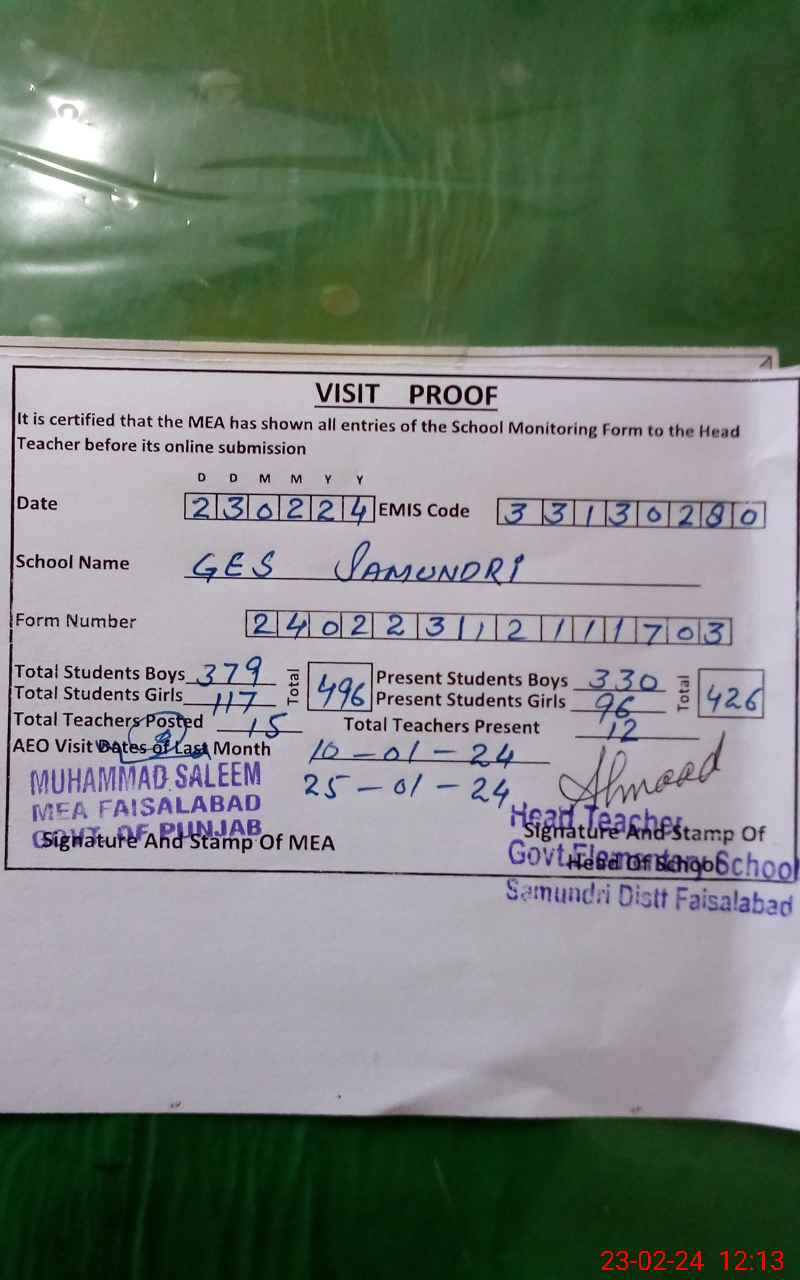 VISIT PROOF
It is certified that the MEA has shown all entries of the School Monitoring Form to the Head
Teacher before its online submission
D D M M Y Y
Date 230224 EMIS Code 33130280
School Name GES SAMUNDRI
Form Number 240223112111703
Total Students Boys 379 Total 496 Present Students Boys 330 Total 426
Total Students Girls 117 Present Students Girls 96
Total Teachers Posted 15 Total Teachers Present 12
AEO Visit Dates of Last Month 10-01-24
25-01-24
MUHAMMAD SALEEM
MEA FAISALABAD
GOVT. OF PUNJAB
Signature And Stamp Of MEA
Ahmaad
Head Teacher
Signature And Stamp Of
Govt. Elementary School
Head Of School
Samundri Distt Faisalabad
23-02-24 12:13